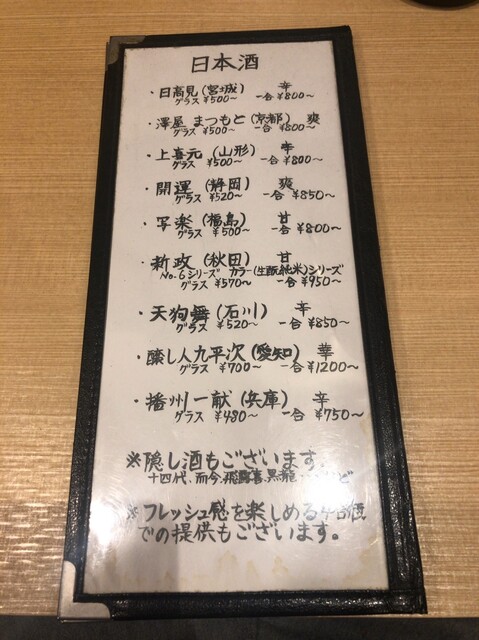 日本酒
・日高見(宮城) 辛
グラス ¥500～ 一合 ¥800～
・澤屋 まつもと(京都) 爽
グラス ¥500～ 一合 ¥800～
・上喜元 (山形) 辛
グラス ¥500～ 一合 ¥800～
・開運 (静岡) 爽
グラス ¥520～ 一合 ¥850～
・写楽 (福島) 甘
グラス ¥500～ 一合 ¥800～
・新政 (秋田) 甘
No.6シリーズ カラー(生酛純米)シリーズ
グラス ¥570～ 一合 ¥950～
・天狗舞(石川) 辛
グラス ¥520～ 一合 ¥850～
・醸し人九平次(愛知) 華
グラス ¥700～ 一合 ¥1200～
・播州一献(兵庫) 辛
グラス ¥480～ 一合 ¥750～
※隠し酒もございます。
十四代、而今、飛露喜、黒龍…など
※フレッシュ感を楽しめる
での提供もございます。